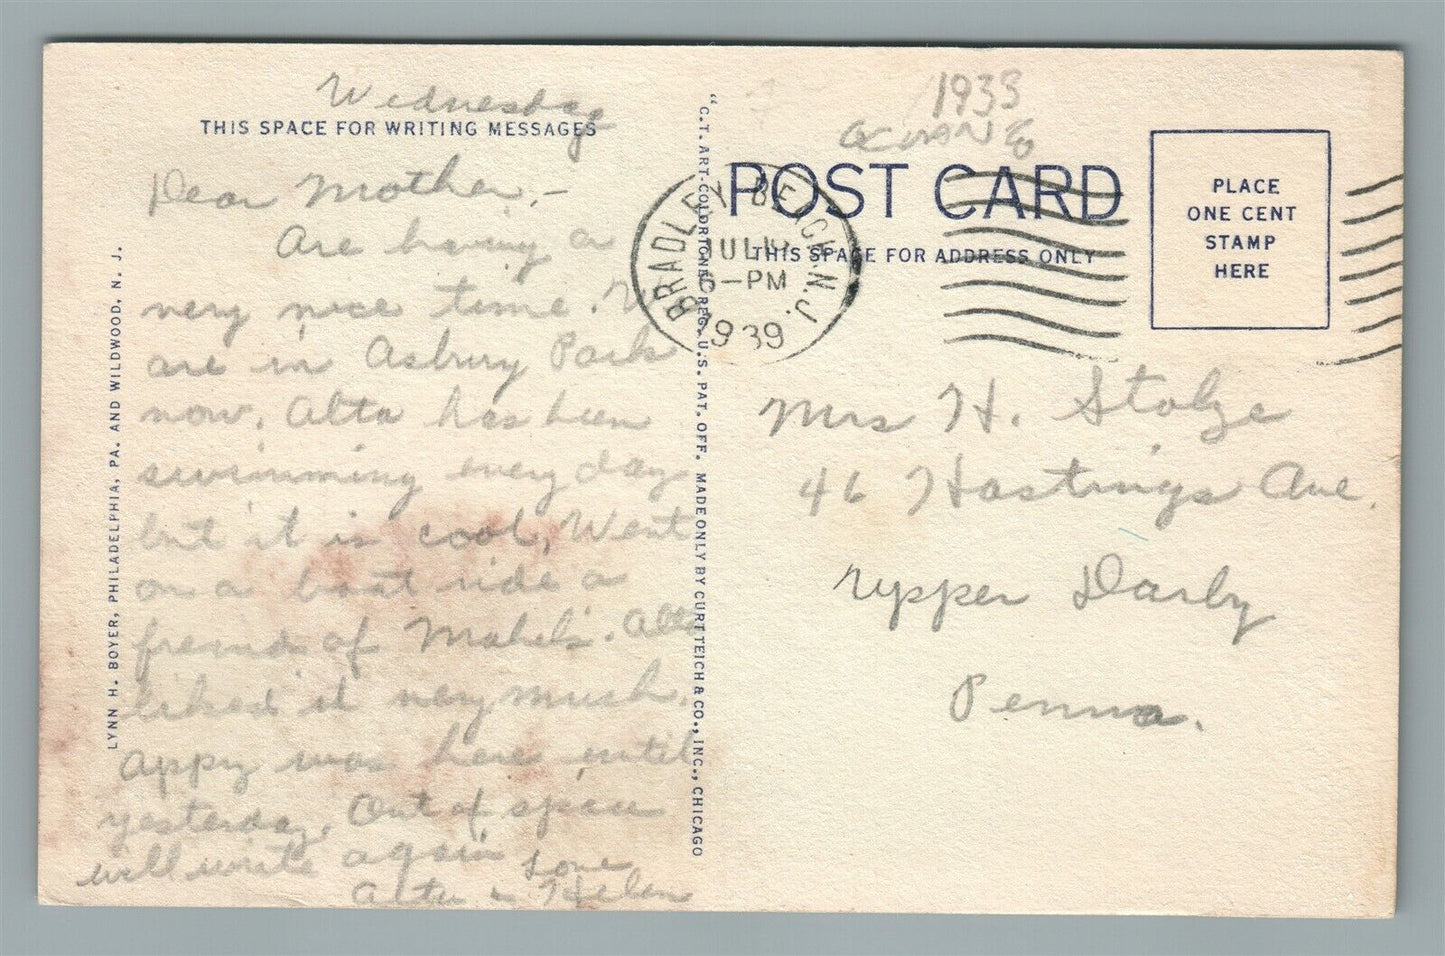 Wednesday
THIS SPACE FOR WRITING MESSAGES
Dear Mother,-
Are having a
very nice time. We
are in Asbury Park
now. Alta has been
swimming every day
but it is cool, Went
on a boat ride a
friend of Mabel's. Alta
liked it very much.
Appy was here until
yesterday. Out of space
will write again
Love
Alta & Helen
LYNN H. BOYER, PHILADELPHIA, PA. AND WILDWOOD, N. J.
"C.T. ART-COLORTONE" REG. U.S. PAT. OFF. MADE ONLY BY CURT TEICH & CO., INC., CHICAGO
1939
OCEAN Co
POST CARD
THIS SPACE FOR ADDRESS ONLY
BRADLEY BEACH, N.J.
JUL
-PM
1939
PLACE
ONE CENT
STAMP
HERE
Mrs H. Stolze
46 Hastings Ave.
Upper Darby
Penna.